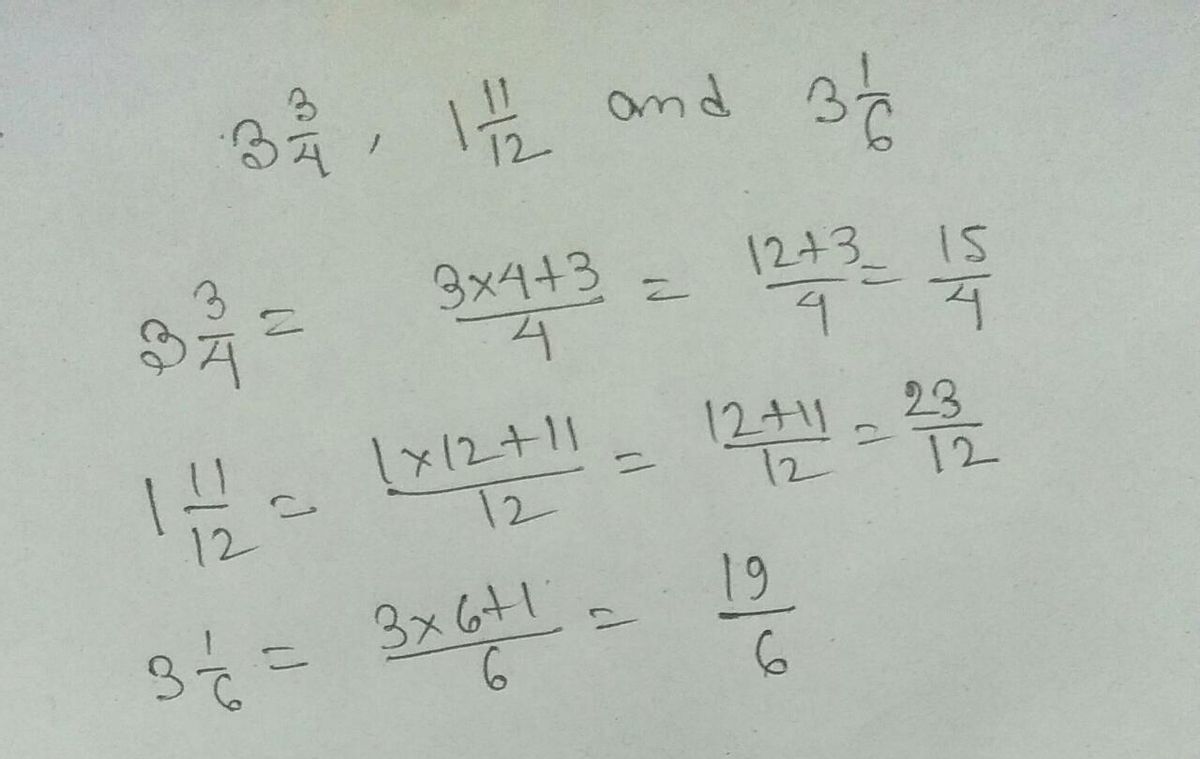 3 3/4 , 1 11/12 and 3 1/6
3 3/4 = (3×4+3)/4 = (12+3)/4 = 15/4
1 11/12 = (1×12+11)/12 = (12+11)/12 = 23/12
3 1/6 = (3×6+1)/6 = 19/6